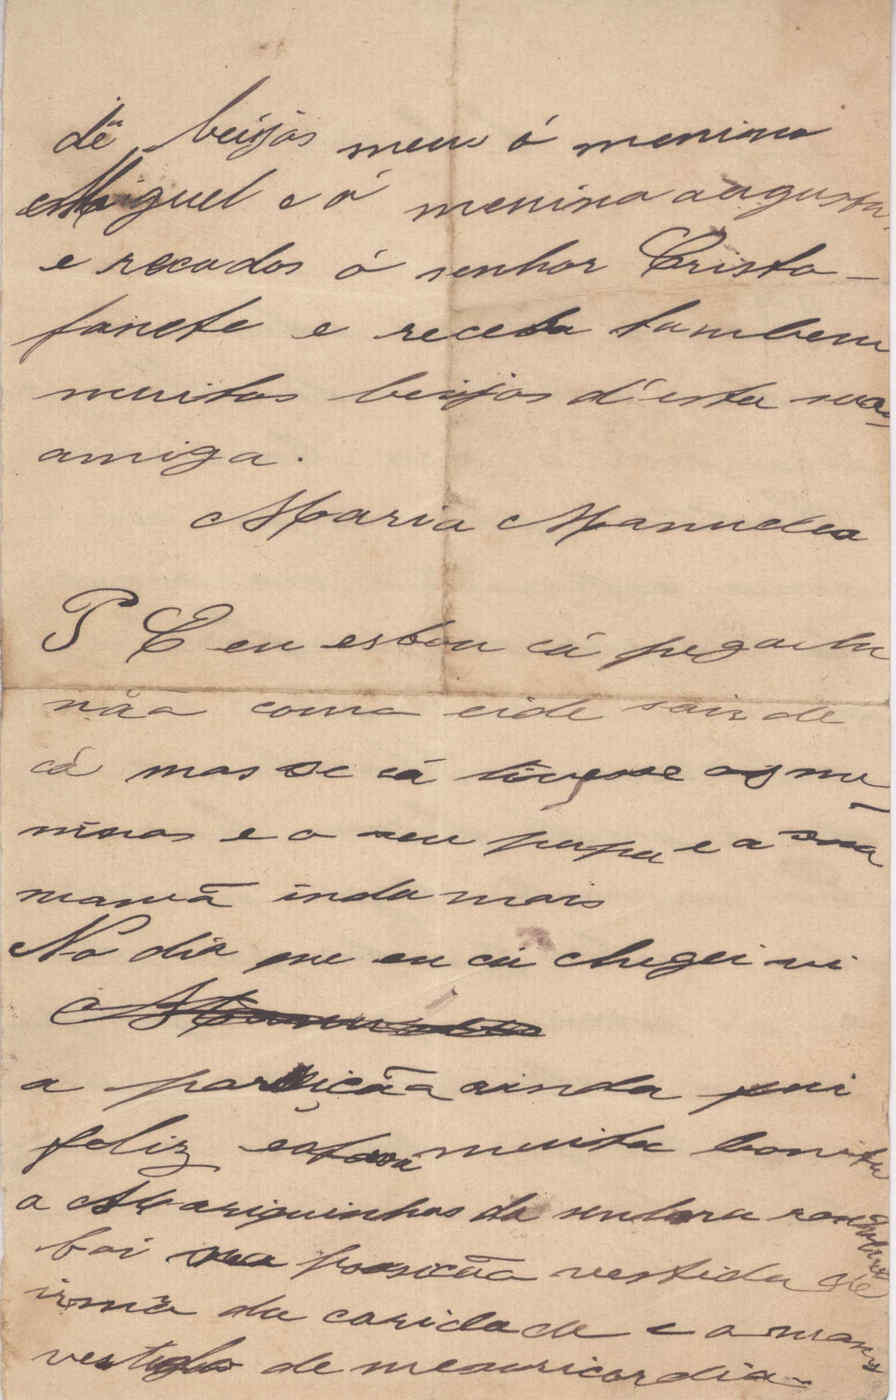 dê beijos meus ó menino
Miguel e á menina augusta
e recados ó senhor Cristo-
fanete e receba tambem
muitos beijos d'esta sua
amiga.
Maria Manuela
P E eu estou cá pegada
não coma eide sair de
cá mas se cá tivesse os me-
ninos e o seu papa e a sua
mamã inda mais
No dia que eu cá chegei vi
a porsição ainda fui
feliz estava muito bonita
a Mariquinhas da senhora
foi na porsicão vestida de
irmã da caridade e a
vestido de mesuricordia